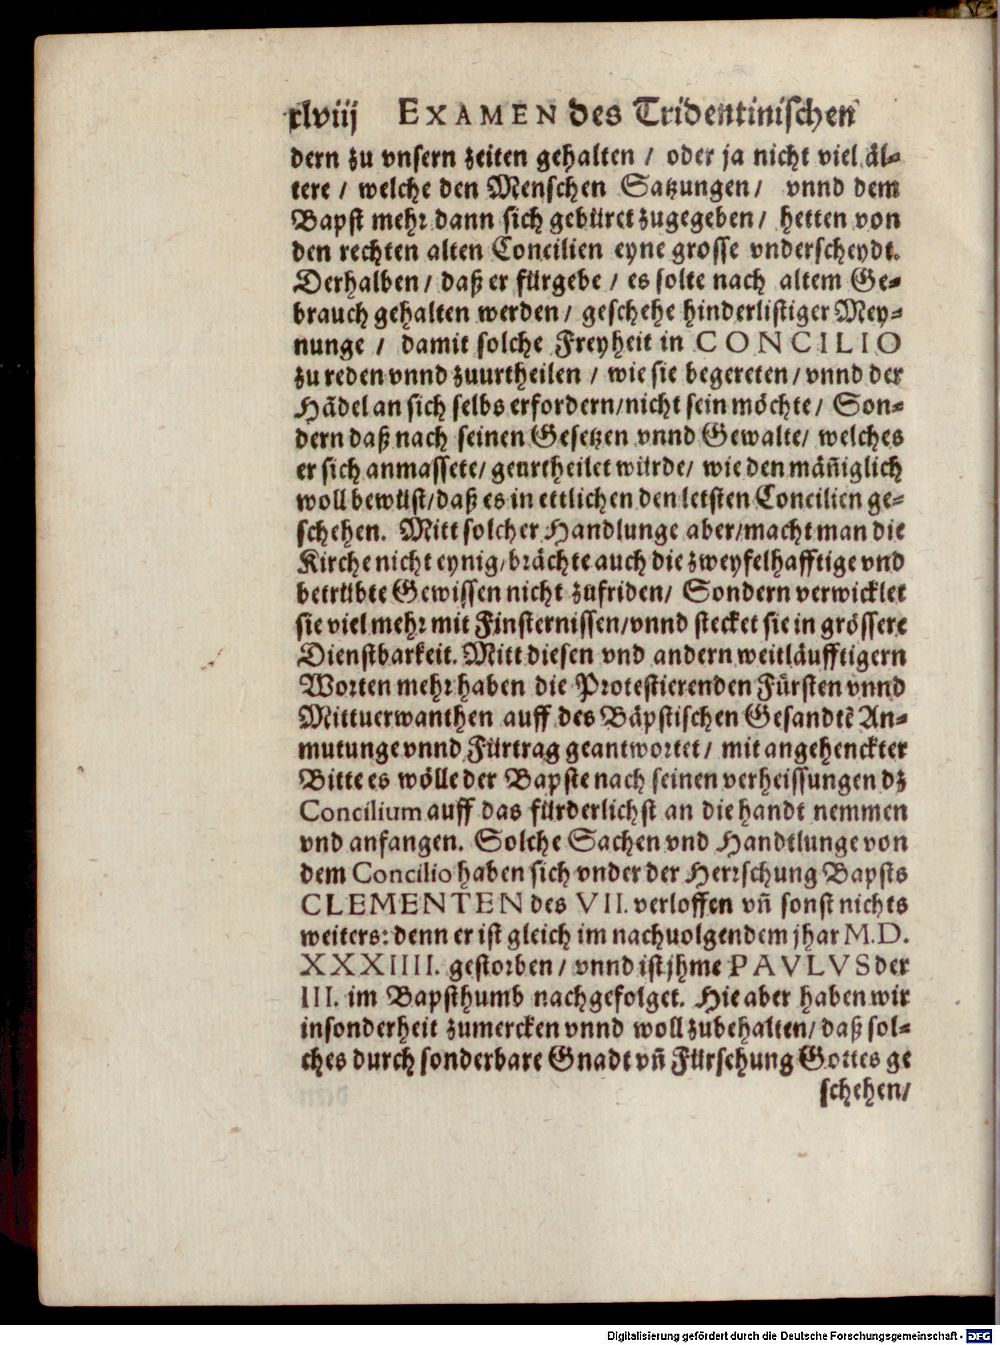 xlviij EXAMEN des Tridentinischen
dern zu vnsern zeiten gehalten / oder ja nicht viel äl-
tere / welche den Menschen Satzungen / vnnd dem
Bapst mehr dann sich gebüret zugegeben / hetten von
den rechten alten Concilien eyne grosse vnderscheydt.
Derhalben / daß er fürgebe / es solte nach altem Ge-
brauch gehalten werden / geschehe hinderlistiger Mey-
nunge / damit solche Freyheit in CONCILIO
zu reden vnnd zuurtheilen / wie sie begereten / vnnd der
Hādel an sich selbs erfordern / nicht sein möchte / Son-
dern daß nach seinen Gesetzen vnnd Gewalte / welches
er sich anmassete / geurtheilet würde / wie den mäñiglich
woll bewüst / daß es in ettlichen den letsten Concilien ge-
schehen. Mitt solcher Handlunge aber / macht man die
Kirche nicht eynig / brächte auch die zweyfelhafftige vnd
betrübte Gewissen nicht zufriden / Sondern verwicklet
sie viel mehr mit Finsternissen / vnnd stecket sie in grössere
Dienstbarkeit. Mitt diesen vnd andern weitläufftigern
Worten mehr haben die Protestierenden Fürsten vnnd
Mittuerwanthen auff des Bäpstischen Gesandtē An-
mutunge vnnd Fürtrag geantwortet / mit angehenckter
Bitte es wölle der Bapste nach seinen verheissungen dz
Concilium auff das fürderlichst an die handt nemmen
vnd anfangen. Solche Sachen vnd Handtlunge von
dem Concilio haben sich vnder der Herrschung Bapsts
CLEMENTEN des VII. verloffen vñ sonst nichts
weiters: denn er ist gleich im nachuolgendem jhar M.D.
XXXIIII. gestorben / vnnd ist jhme PAVLVS der
III. im Bapsthumb nachgefolget. Hie aber haben wir
insonderheit zumercken vnnd woll zubehalten / daß sol-
ches durch sonderbare Gnadt vñ Fürsehung Gottes ge
schehen /
Digitalisierung gefördert durch die Deutsche Forschungsgemeinschaft - DFG